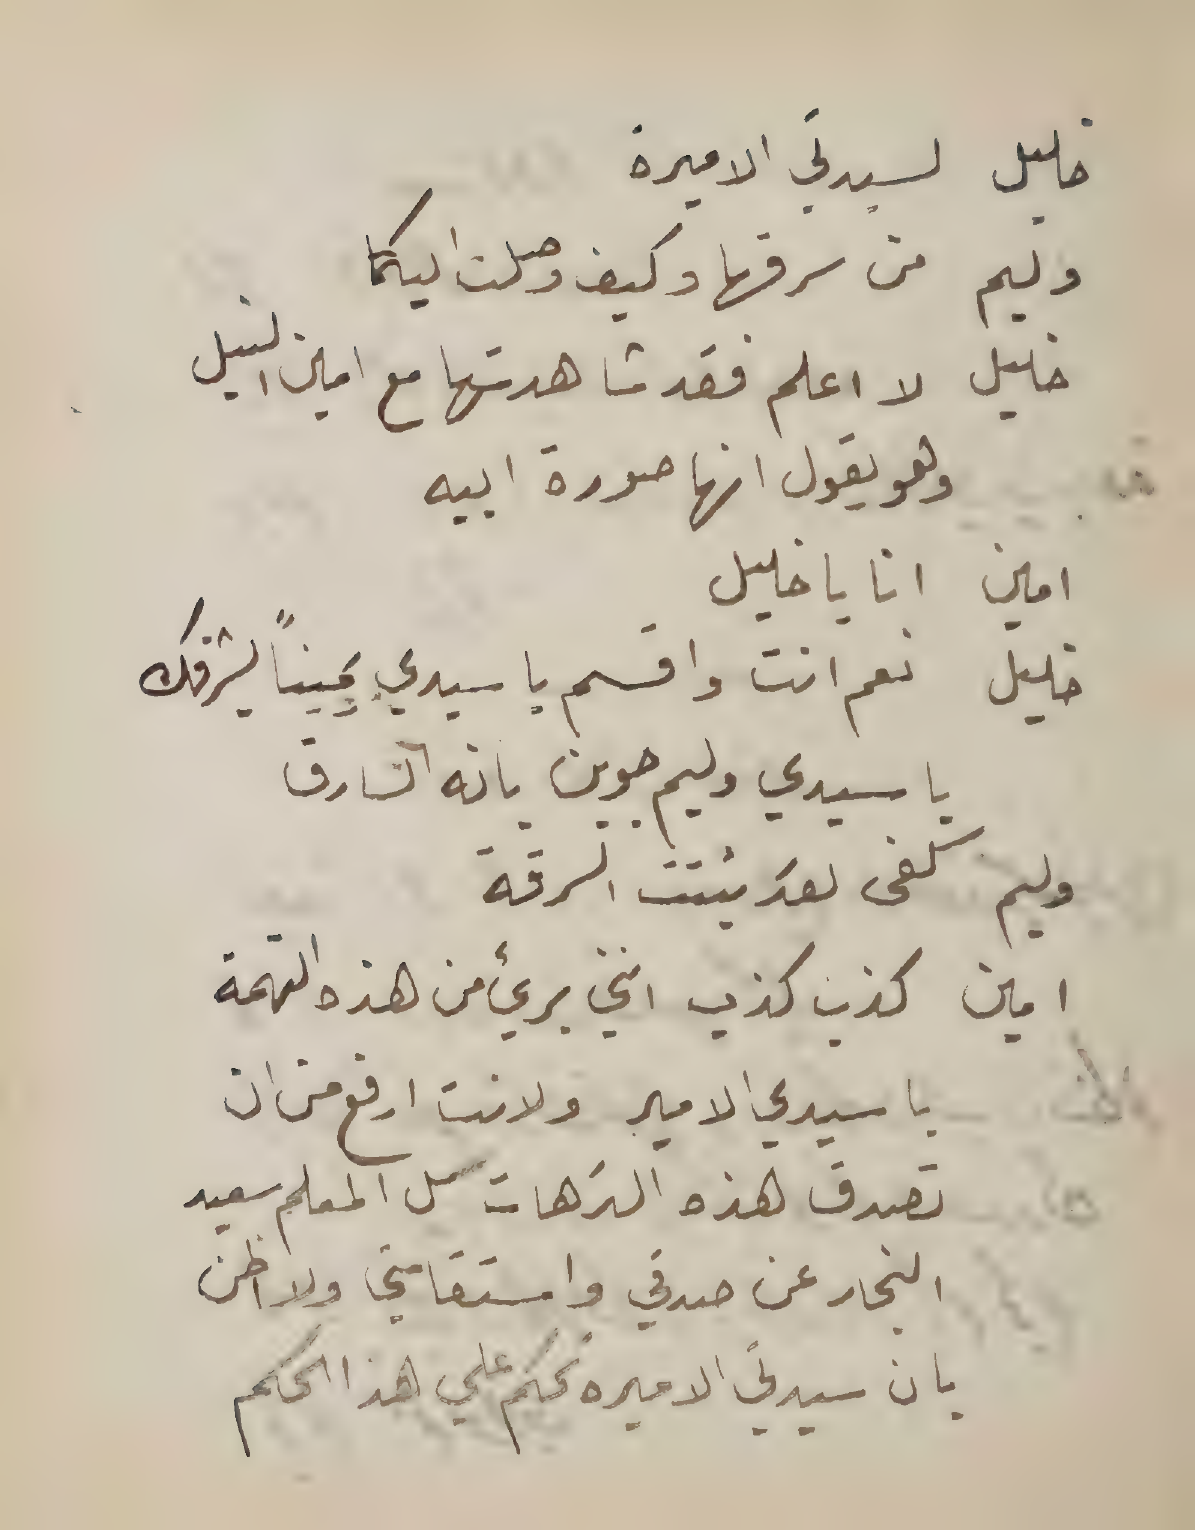 خليل لسيدتي الاميرة
وليم من سرقها وكيف وصلت اليكما
خليل لا اعلم فقد شاهدتها مع امين النبيل
وهو يقول انها صورة ابيه
امين انا يا خليل
خليل نعم انت واقسم يا سيدي يميناً بشرفك
يا سيدي وليم جوين بانه السارق
وليم كفى لقد ثبتت السرقة
امين كذب كذب انني بريئ من هذه التهمة
يا سيدي الامير ولانت ارفع من ان
تصدق هذه الترهات سل المعلم سعيد
النجار عن صدقي واستقامتي ولا اظن
بان سيدتي الاميره تحكم علي هذا الحكم